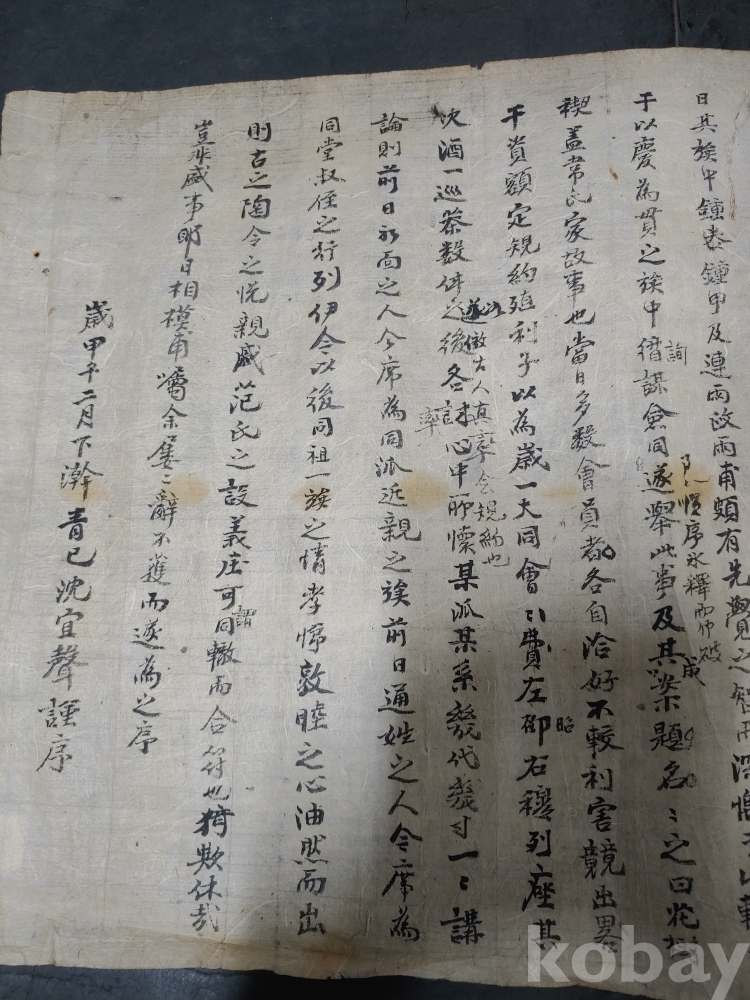 日其族中鍾泰鍾甲及連雨改雨甫頗有先覺之智而深
干以慶爲貫之族中僭詢謀僉同遂擧此事及其案成題名名之曰花
禊盖韋氏家故事也當日多數會員者各自洽好不較利害競出畧
干資額定規約殖利子以爲歲一大同會會費左昭右穆列座其
次酒一巡茶數佚之後各討心中所懷某派某系幾代幾寸一一講
遂倣古人真率會規約也
論則前日初面之人今席爲同派近親之族前日通姓之人今席爲
同堂叔侄之行列伊今以後同祖一族之情孝悌敦睦之心油然而出
則古之陶令之悅親戚范氏之設義庄可謂同轍而合符也猗歟休哉
豈非盛事耶日相模甫囑余屢屢辭不獲而遂爲之序
歲甲午二月下澣靑已沈宜聲謹序
kobay